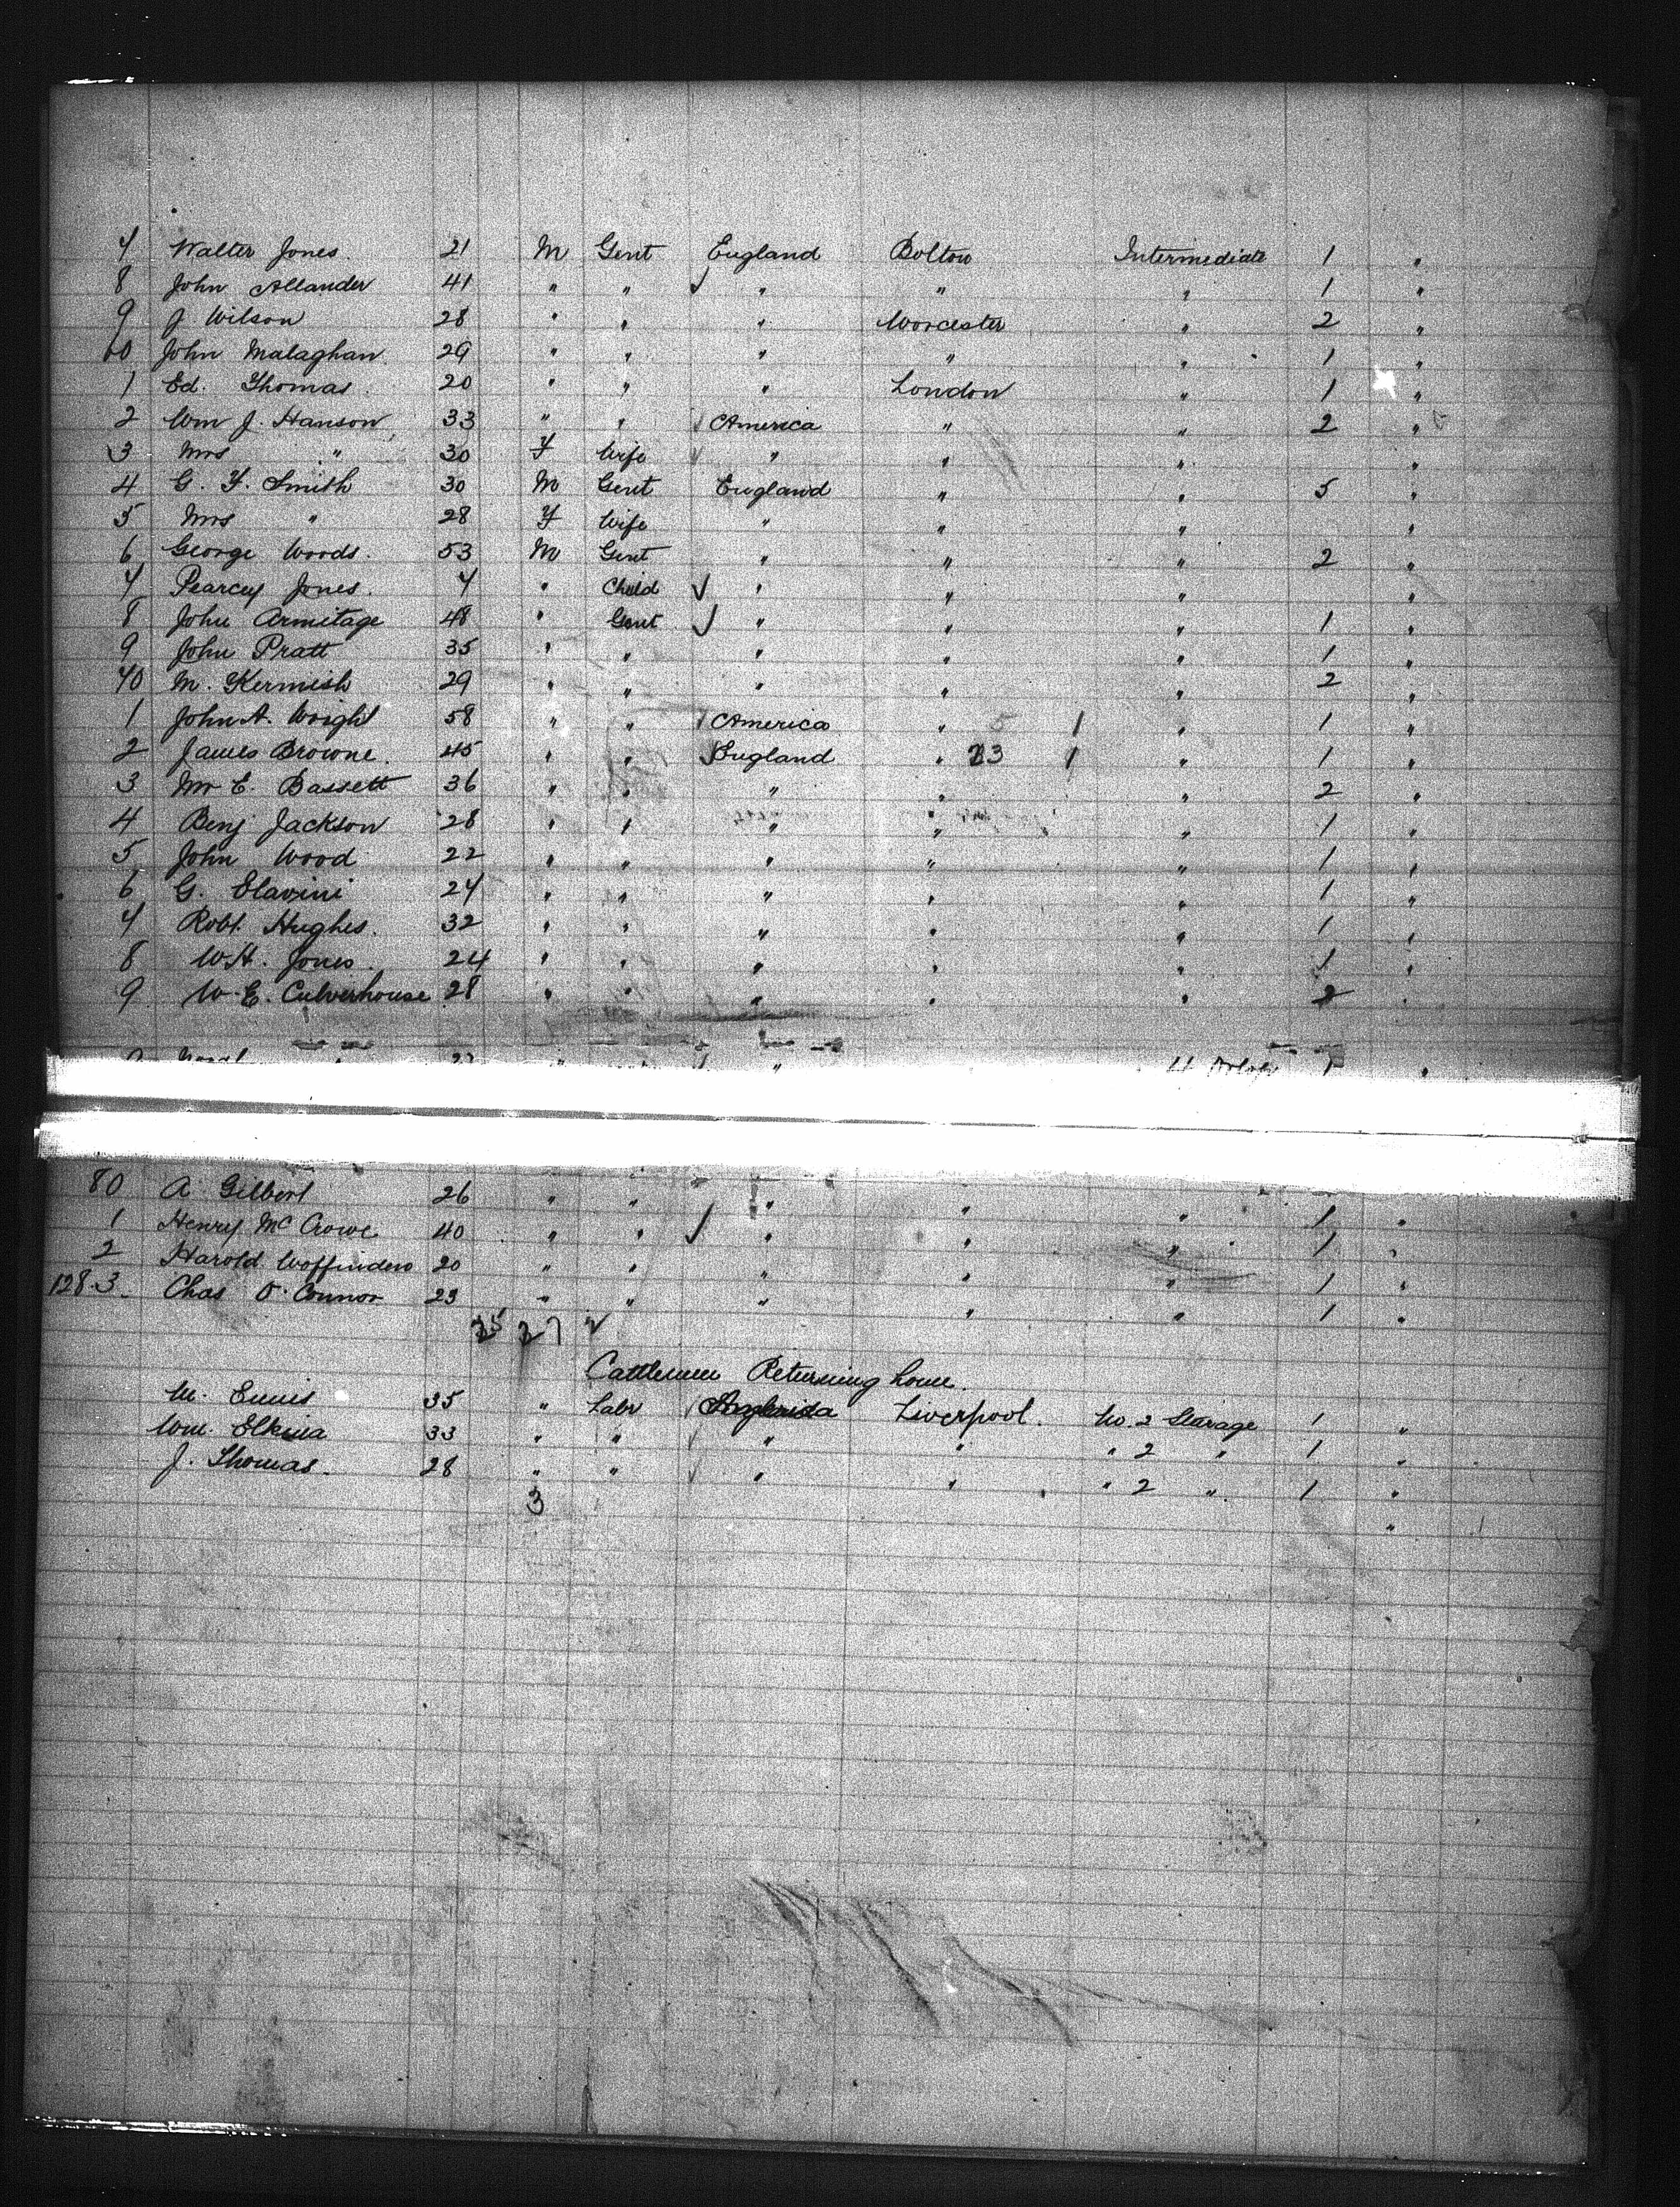 7 Walter Jones. 21 M Gent England Bolton Intermediate 1 "
8 John Allander 41 " " " " " 1 "
9 J Wilson 28 " " " Worcester " 2 "
60 John Malaghan 29 " " " " " 1 "
1 Ed. Thomas. 20 " " " London " 1 "
2 Wm J. Hanson 33 " " America " " 2 "
3 Mrs " 30 F Wife " " " "
4 G. F. Smith 30 M Gent England " " 5 "
5 Mrs " 28 F Wife " " " "
6 George Woods. 53 M Gent " " " 2 "
7 Pearcey Jones. 7 " Child " " " "
8 John Armitage 48 " Gent " " " 1 "
9 John Pratt 35 " " " " " 1 "
70 M. Kermish 29 " " " " " 2 "
1 John A. Wright 58 " " America " 1 " 1 "
2 James Browne. 45 " " England " 23 1 " 1 "
3 Mr E. Bassett 36 " " " " " 2 "
4 Benj Jackson 28 " " " " " 1 "
5 John Wood 22 " " " " " 1 "
6 G. Slavini 24 " " " " " 1 "
7 Robt. Hughes. 32 " " " " " 1 "
8 W.H. Jones. 24 " " " " " 1 "
9 W.E. Culverhouse 28 " " " " " 2 "
80 A Gilbert 26 " " " " " 1 "
1 Henry Mc Crowe 40 " " " " " 1 "
2 Harold Woffinden 20 " " " " " 1 "
128.3 Chas O'Connor 23 " " " " " 1 "
27
Cattlemen Returning home.
M. Ennis 35 " Labr Liverpool. No. 2 Stearage 1 "
Wm. 33 " " " " " 2 " 1 "
J. Thomas. 28 " " " " " 2 " 1 "
3 "